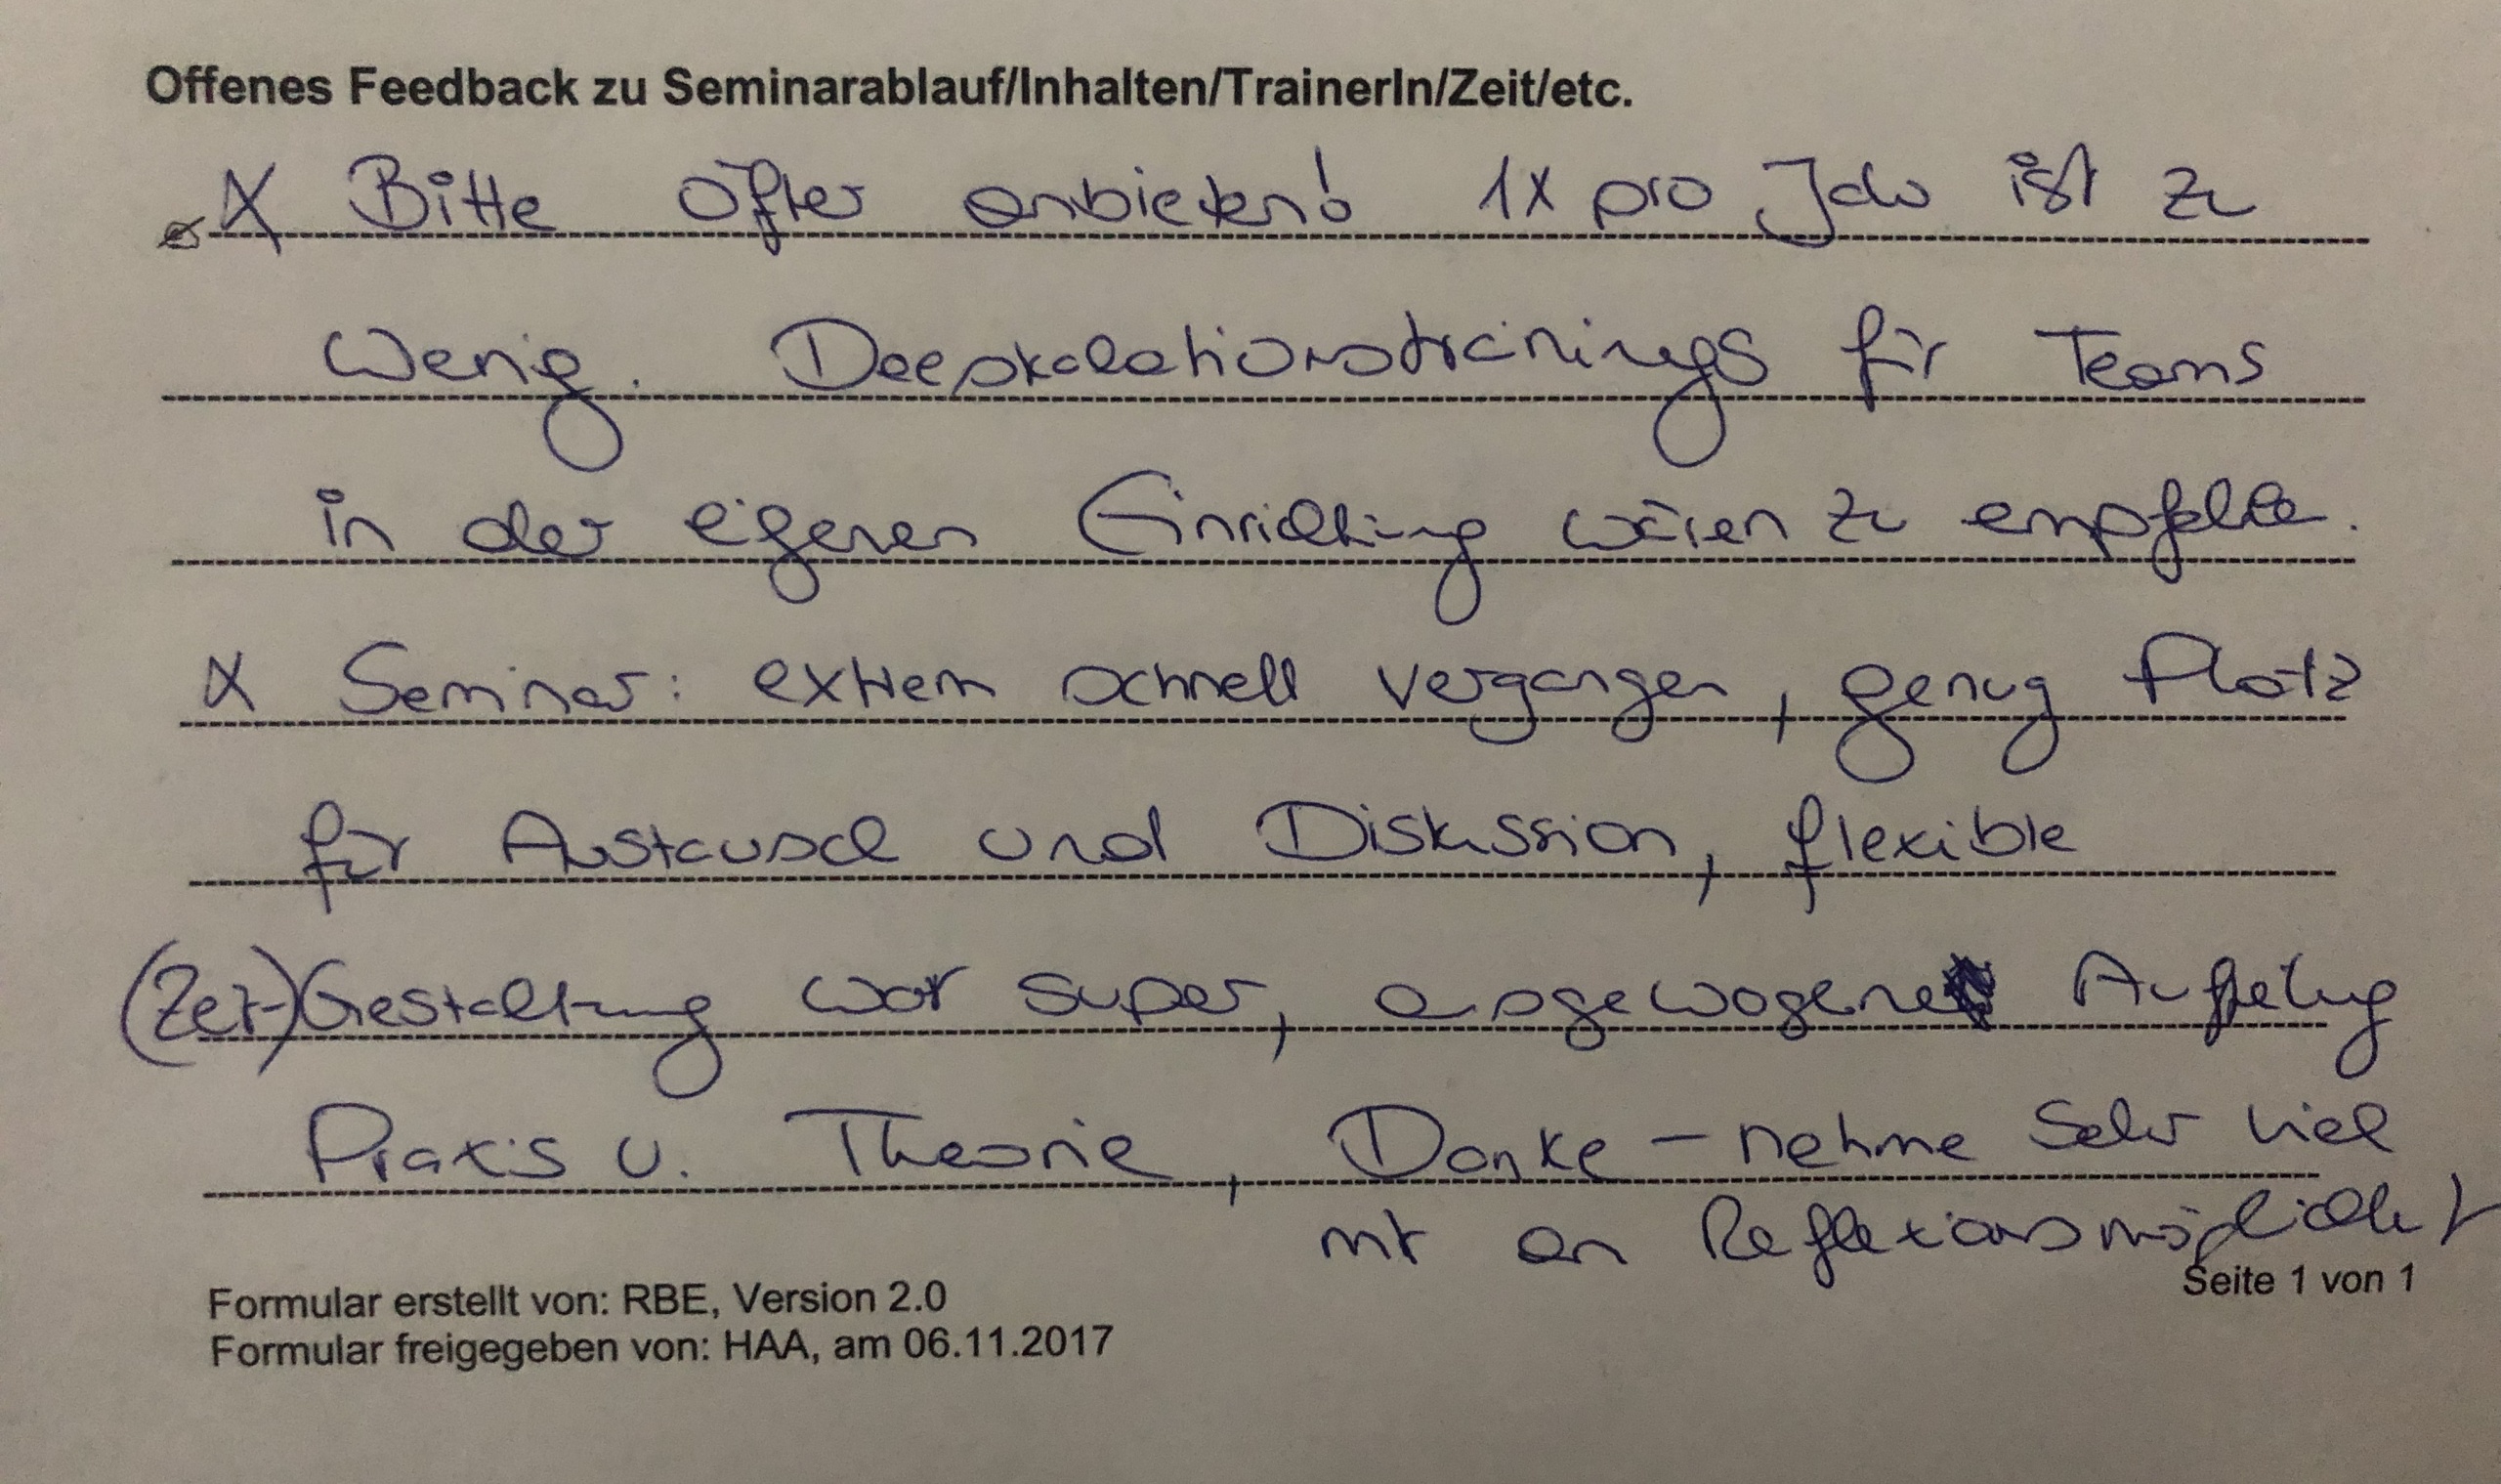 Offenes Feedback zu Seminarablauf/Inhalten/TrainerIn/Zeit/etc.
X Bitte öfter anbieten! 1x pro Jahr ist zu
wenig. Deeskalationstrainings für Teams
in der eigenen Einrichtung wären zu empfehlen.
X Seminar: extrem schnell vergangen, genug Platz
für Austausch und Diskussion, flexible
(Zeit-)Gestaltung war super, ausgewogene Aufteilung
Praxis u. Theorie, Danke - nehme sehr viel
mit an Reflexionsmöglichkeit
Formular erstellt von: RBE, Version 2.0
Formular freigegeben von: HAA, am 06.11.2017
Seite 1 von 1